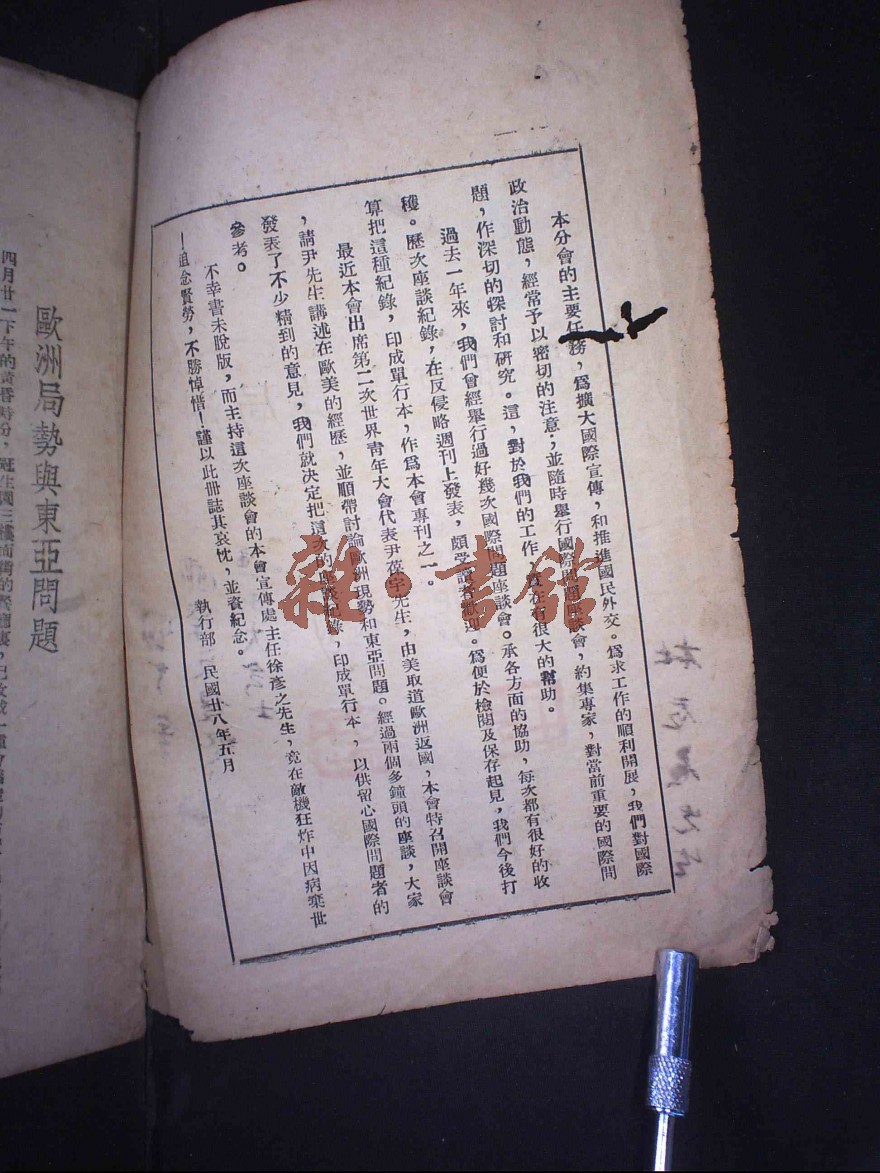 本分會的主要任務，爲擴大國際宣傳，和推進國民外交。爲求工作的順利開展，我們對國際
政治動態，經常予以密切的注意；並隨時舉行國際問題座談會，約集專家，對當前重要的國際問
題，作深切的探討和研究。這，對於我們的工作，實在有很大的幫助。
過去一年來，我們曾經舉行過好幾次國際問題座談會。承各方面的協助，每次都有很好的收
穫。歷次座談紀錄，在反侵略週刊上發表，頗受讀者歡迎。爲便於檢閱及保存起見，我們今後打
算把這種紀錄，印成單行本，作爲本會專刊之一。
最近本會出席第二次世界靑年大會代表尹葆宇先生，由美取道歐洲返國，本會特召開座談會
，請尹先生講述在歐美的經歷，並順帶討論歐洲現勢和東亞問題。經過兩個多鐘頭的座談，大家
發表了不少精到的意見，我們就決定把這次的座談紀錄，印成單行本，以供留心國際問題者的
參考。
不幸書未脫版，而主持這次座談會的本會宣傳處主任徐彥之先生，竟在敵機狂炸中因病棄世
—追念賢勞，不勝悼惜！謹以此冊誌其哀忱，並資紀念。
執行部 民國廿八年五月
歐洲局勢與東亞問題
雜·書館